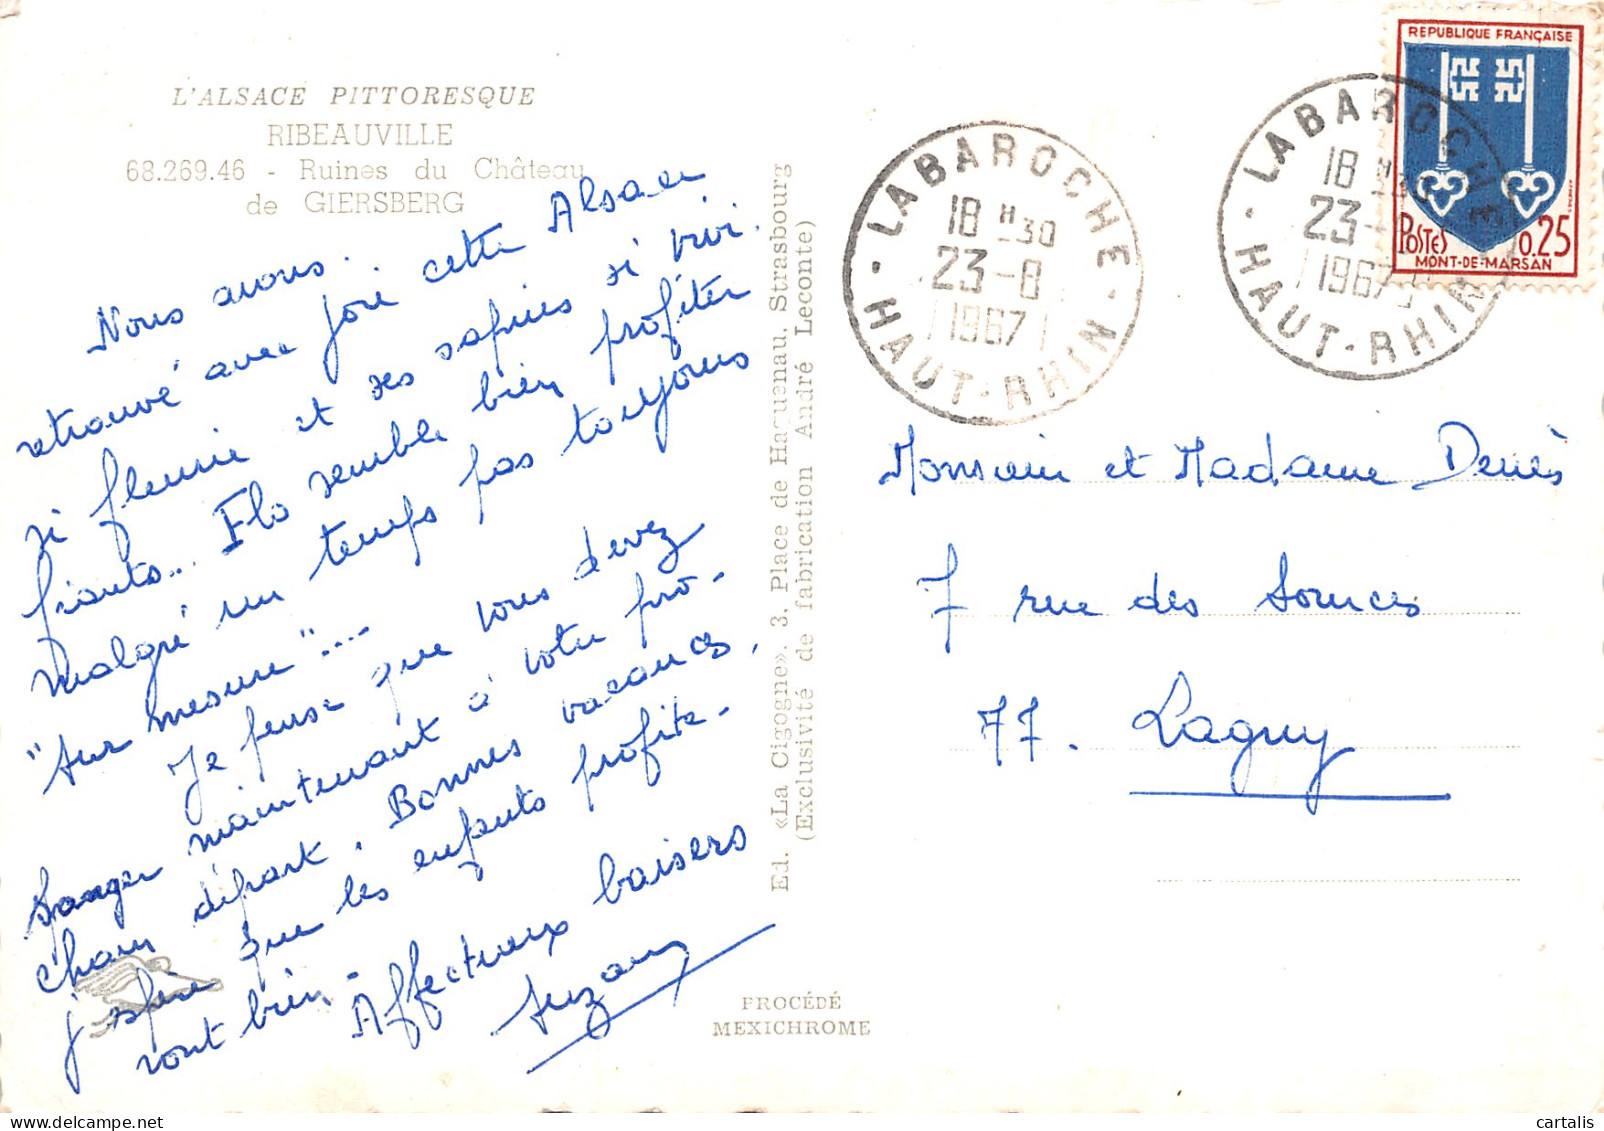 L'ALSACE PITTORESQUE
RIBEAUVILLE
68.269.46 - Ruines du Château
de GIERSBERG
Nous avons
retrouvé avec joie cette Alsace
si fleurie et ses sapins si vivi.
fiants... Flo semble bien profiter
malgré un temps pas toujours
"sur mesure"....
Je pense que vous devez
songer maintenant à votre pro-
chain départ. Bonnes vacances,
j'espère que les enfants profite-
ront bien -
Affectueux baisers
Suzany
Ed. «La Cigogne». 3. Place de Haguenau, Strasbourg
(Exclusivité de fabrication André Leconte)
PROCÉDÉ
MEXICHROME
LABAROCHE
18 H 30
23-8
1967
HAUT-RHIN
LABAROCHE
18 H
23-
1967
HAUT-RHIN
REPUBLIQUE FRANÇAISE
POSTES 0.25
MONT-DE-MARSAN
Monsieur et Madame Denis
7 rue des Sources
77. Lagny
cartalis